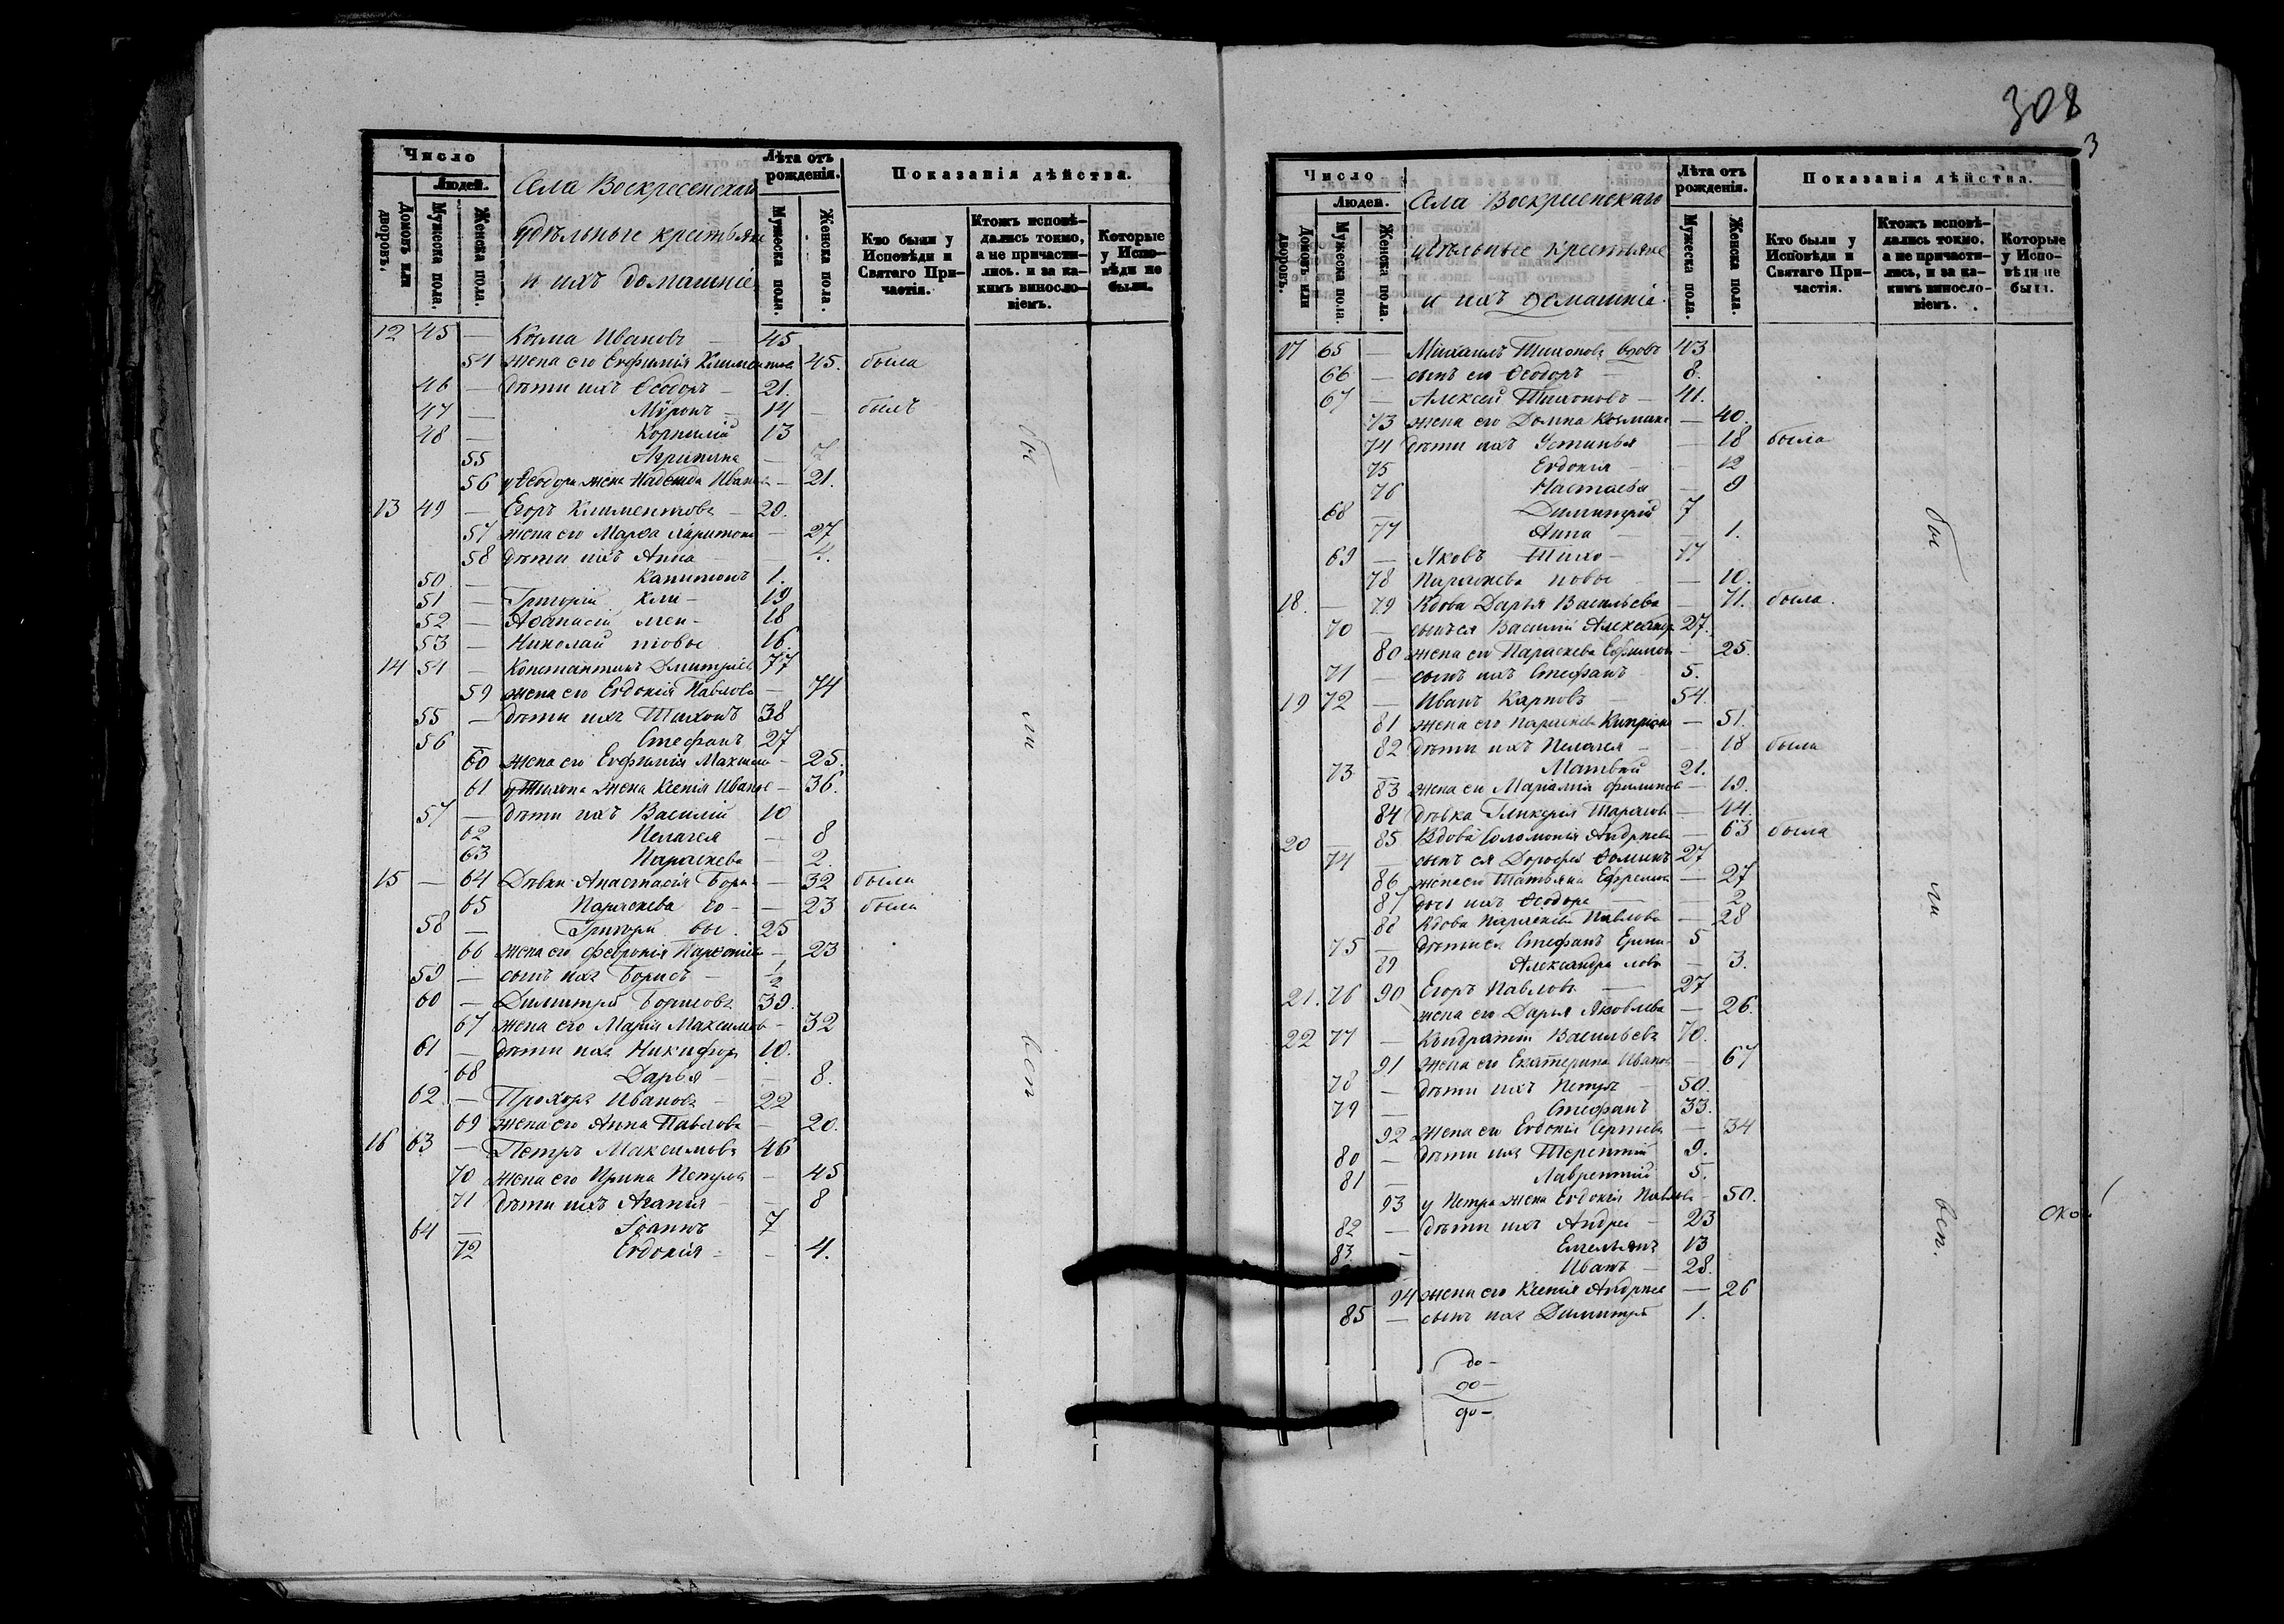 Число
Людей.
Домовъ или дворовъ.
Мужеска пола.
Женска пола.
Села Воскресенскаго
удѣльные крестьяне
и ихъ домашніе
Лѣта отъ рожденія.
Мужеска пола.
Женска пола.
Показанія дѣйства.
Кто были у Исповѣди и Святаго Причастія.
Ктожъ исповѣдались токмо, а не причастились. и за какимъ винословіемъ.
Которые у Исповѣди не были.
12 45 — Козма Ивановъ — 45
54 жена его Евфимія Климентова 45. была
46 — дѣти ихъ Ѳеодоръ — 21.
47 — Мѵронъ — 14 — былъ
48 — Корнилій 13
55 Агрипина — 7
56 у Ѳеодора жена Надежда Иванова — 21.
13 49 — Егоръ Климентовъ — 29.
57 жена его Марѳа Харитонова — 27
58 дѣти ихъ Анна — 4.
50 — Капитонъ 1.
51 — Григорій Кли- 19
52 — Аѳанасій мен- 18
53 — Николай товы 16.
14 54 — Константинъ Дмитріевъ 77
59 жена его Евдокія Павлова — 74
55 — дѣти ихъ Тихонъ 38
56 — Стефанъ 27
60 жена его Евфимія Максимова — 25.
61 у Тихона жена Ксенія Иванова — 36.
57 — дѣти ихъ Василій 10
62 Пелагея — 8
63 Параскева — 2.
15 — 64 Дѣвки Анастасія Бори- — 32 была
65 Параскева со- — 23 была
58 — Григорій вы. 25
66 жена его Февронія — 23
59 — сынъ ихъ Борисъ — 1/2
60 — Димитрій Борисовъ 39.
67 жена его Марія Максимова — 32
61 — дѣти ихъ Никифоръ 10.
68 Дарья — 8.
62 — Прохоръ Ивановъ — 22
69 жена его Анна Павлова — 20.
16 63 — Петръ Максимовъ 46
70 жена его Ирина Петрова — 45
71 дѣти ихъ Агапія — 8
64 — Іоаннъ 7
72 Евдокія — 4.
бы
ли
всп
308
3
Число
Людей.
Домовъ или дворовъ.
Мужеска пола.
Женска пола.
Села Воскресенскаго
удѣльные крестьяне
и ихъ домашніе.
Лѣта отъ рожденія.
Мужеска пола.
Женска пола.
Показанія дѣйства.
Кто были у Исповѣди и Святаго Причастія.
Ктожъ исповѣдались токмо, а не причастились, и за какимъ винословіемъ.
Которые у Исповѣди не были.
17 65 — Михаилъ Тихоновъ вдовъ 43
66 — сынъ его Ѳеодоръ — 8.
67 — Алексей Тихоновъ — 41.
73 жена его Домна Козмина — 40.
74 дѣти ихъ Устинья — 18 была
75 Евдокія — 12
76 Настасья — 9
68 — Димитрій 7
77 Анна — 1.
69 — Яковъ Тихо- 17
78 Параскева новы — 10.
18. — 79 Вдова Дарья Васильева — 71. была.
70 — сынъ ея Василій Александр. 27.
80 жена его Параскева Ефимова — 25.
71 — сынъ ихъ Стефанъ 5.
19 72 — Иванъ Карповъ 54.
81 жена его Параскева — 51.
82 дѣти ихъ Пелагея — 18 была
73 — Матвей 21.
83 жена его Маріамія Филипова — 19.
84 дѣвка Гликерія Тарасова — 44.
20 — 85 Вдова Соломонія Андреева — 63 была
74 — сынъ ея Дорофей Ѳоминъ 27
86 жена его Татьяна Ефремова — 27
87 дочь ихъ Ѳеодора — 2
88 Вдова Параскева Павлова — 28
75 — дѣти ея Стефанъ Ерми- 5
89 Александра лова — 3.
21. 76 90 Егоръ Павловъ — 27
жена его Дарья Яковлева — 26.
22 77 — Кондратій Васильевъ 70.
91 жена его Екатерина Иванова — 67
78 — дѣти ихъ Петръ — 50.
79 — Стефанъ 33.
92 жена его Евдокія Сергѣева — 34
80 — дѣти ихъ Терентій 9.
81 — Лаврентій 5.
93 у Петра жена Евдокія Павлова — 50.
82 — дѣти ихъ Андрей — 23
83 — Емельянъ 13
Иванъ — 28.
94 жена его Ксенія Андреева — 26
85 — сынъ ихъ Димитрій 1.
бы
ли
всп.
до-
до-
до-